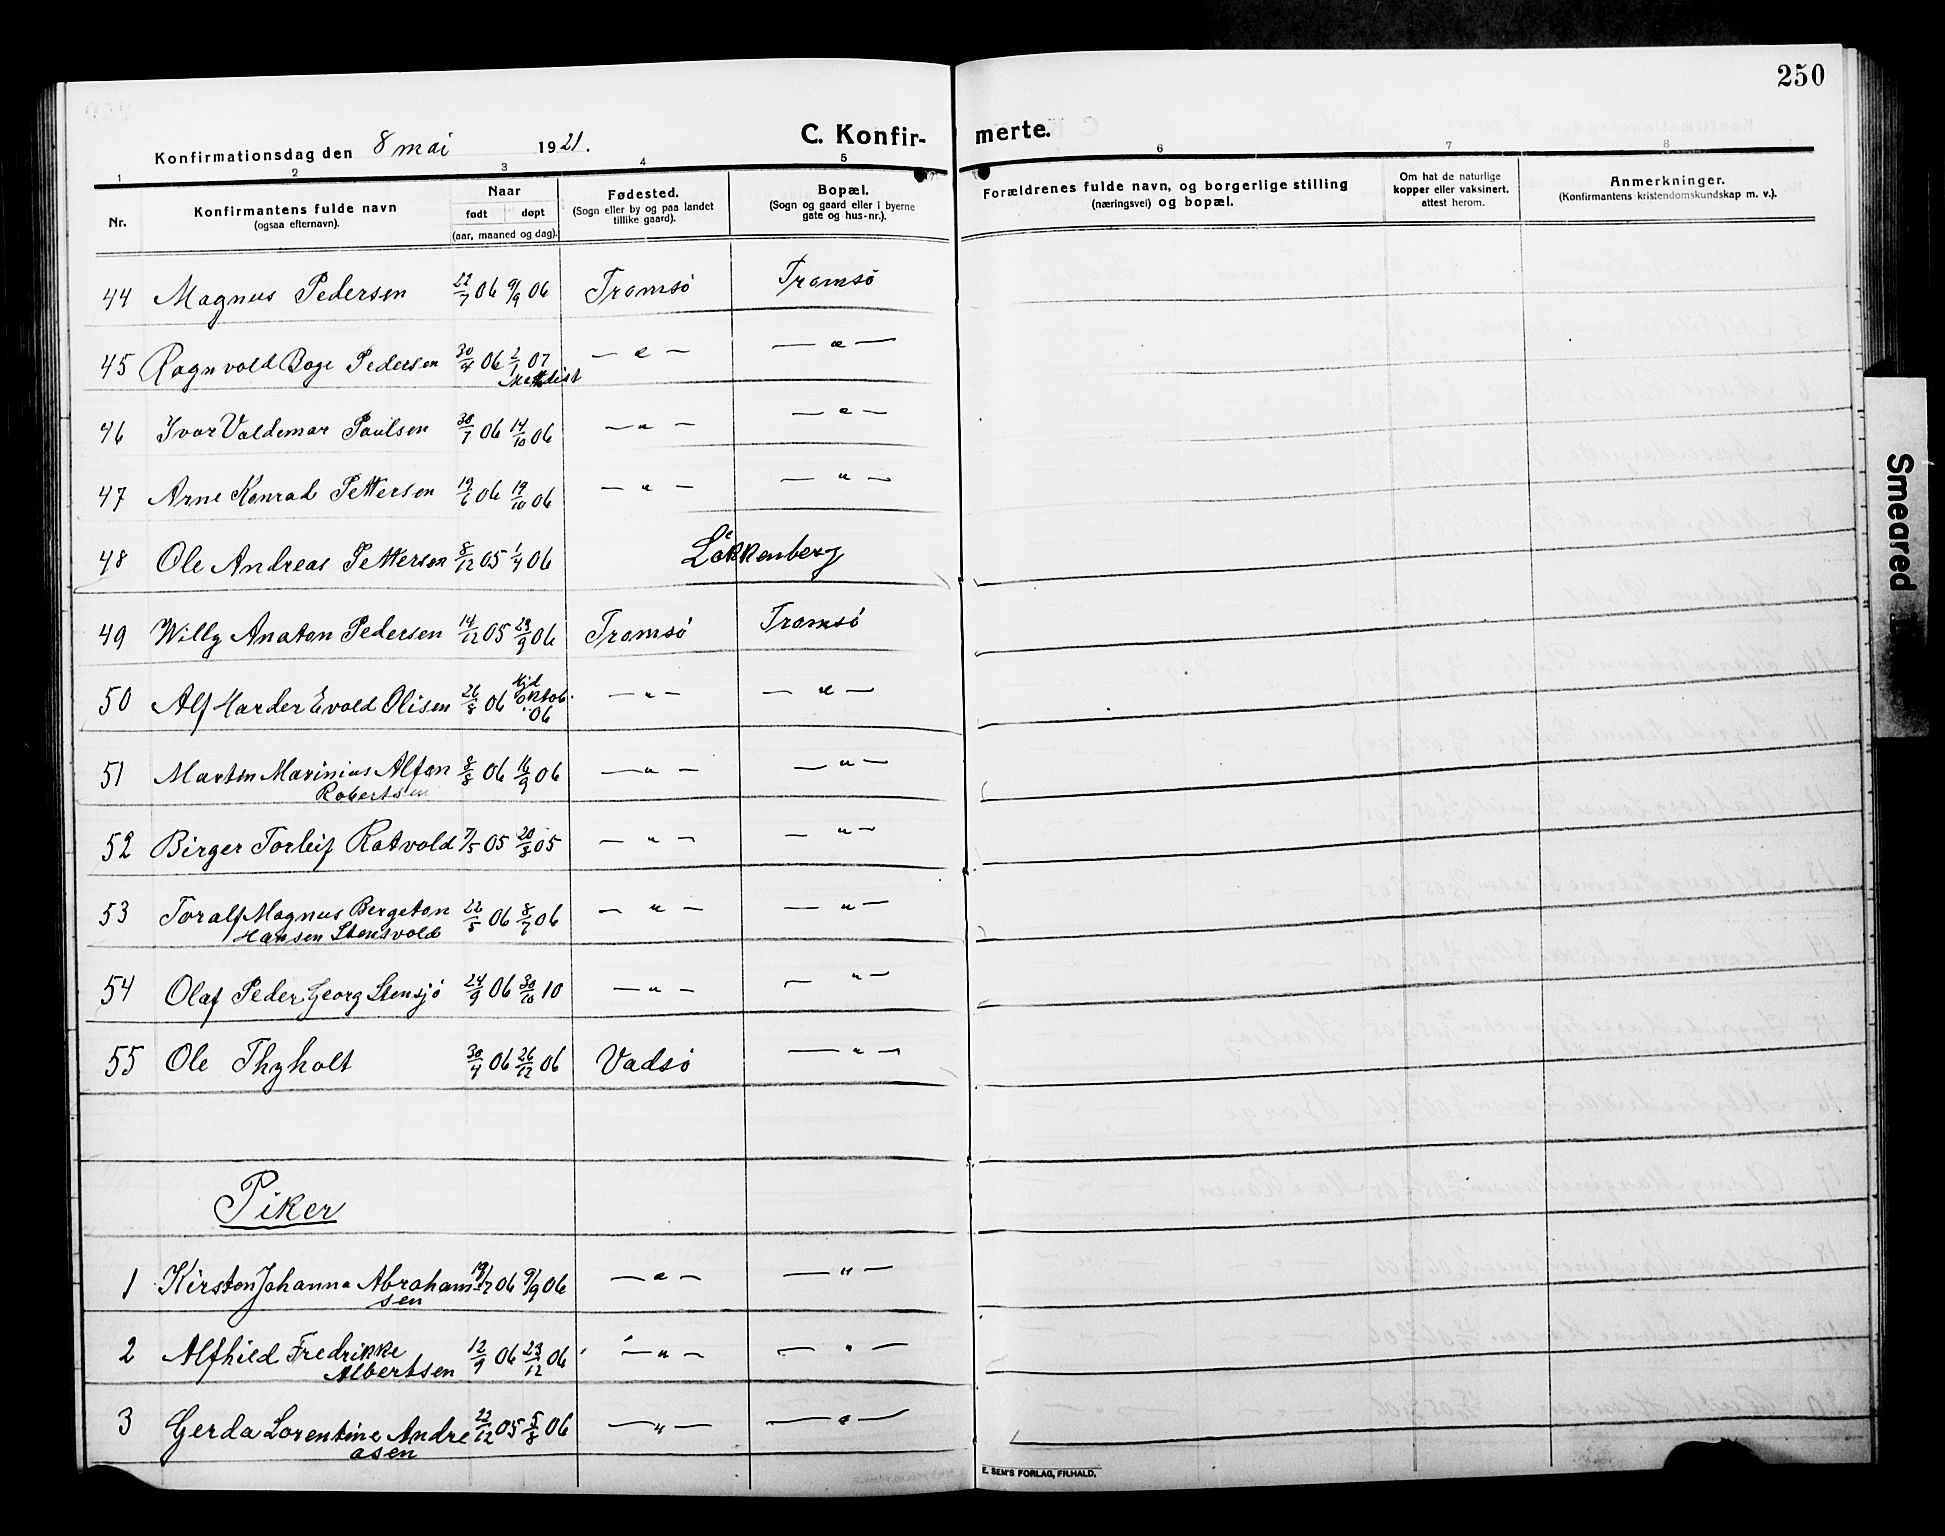 250
C. Konfirmerte.
Konfirmationsdag den 8 mai 1921.
1 2 3 4 5 6 7 8
Nr.
Konfirmantens fulde navn
(ogsaa efternavn).
Naar
født døpt
(aar, maaned og dag).
Fødested.
(Sogn eller by og paa landet
tillike gaard).
Bopæl.
(Sogn og gaard eller i byerne
gate og hus-nr.).
Forældrenes fulde navn, og borgerlige stilling
(næringsvei) og bopæl.
Om hat de naturlige
kopper eller vaksinert.
attest herom.
Anmerkninger.
(Konfirmantens kristendomskundskap m. v.).
44 Magnus Pedersen 22/7 06 9/9 06 Tromsö Tromsö
45 Ragnvold Boge Pedersen 30/4 06 2/1 07 — " — — " —
Metodist
46 Ivar Valdemar Paulsen 30/7 06 14/10 06 — " — — " —
47 Arne Konrad Pettersen 19/6 06 19/10 06 — " — — " —
48 Ole Andreas Pettersen 8/12 05 1/4 06
49 Willy Anaton Pedersen 14/12 05 23/9 06 Tromsö Tromsö
50 Alf Harder Evald Olisen 26/8 06 oktob. 06 — " — — " —
51 Martin Marinius Alfon 8/8 06 16/9 06 — " — — " —
Robertsen
52 Birger Torleif Rotvold 7/5 05 20/8 05 — " — — " —
53 Toralf Magnus Bergeton 22/5 06 8/7 06 — " — — " —
Hansen Stensvold
54 Olaf Peder Georg Stensjö 24/9 06 30/10 10 — " — — " —
55 Ole Thyholt 30/4 06 26/12 06 Vadsö — " —
Piker
1 Kirsten Johanna Abraham- 19/7 06 9/9 06 — " — — " —
sen
2 Alfhild Fredrikke 12/9 06 23/12 06 — " — — " —
Albertsen
3 Gerda Lorentine Andre 22/12 05 5/8 06 — " — — " —
asen
E. SEM'S FORLAG, FR.HALD.
Smeared